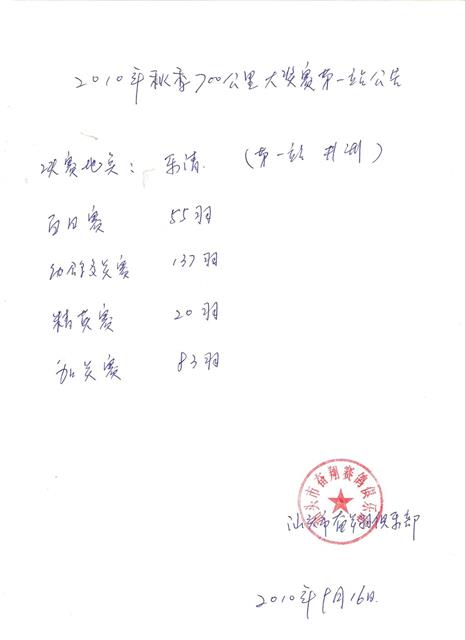 2010年秋季700公里大奖赛第一站公告
决赛地点：乐清 （第一站 ）
百日赛 55羽
幼鸽关赛 137羽
精英赛 20羽
加关赛 83羽
汕头市奋翔赛鸽俱乐部
汕头市奋翔俱乐部
2010年9月16日.